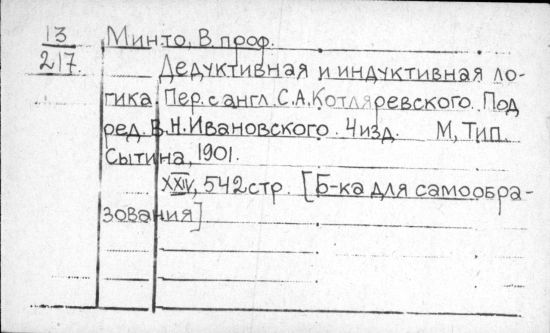 13
217.
Минто, В. проф.
Дедуктивная и индуктивная ло-
гика. Пер. с англ. С.А.Котляревского. Под
ред. В.Н.Ивановского. 4 изд. М, Тип.
Сытина, 1901.
XXIV, 542 стр. [Б-ка для самообра-
зования]